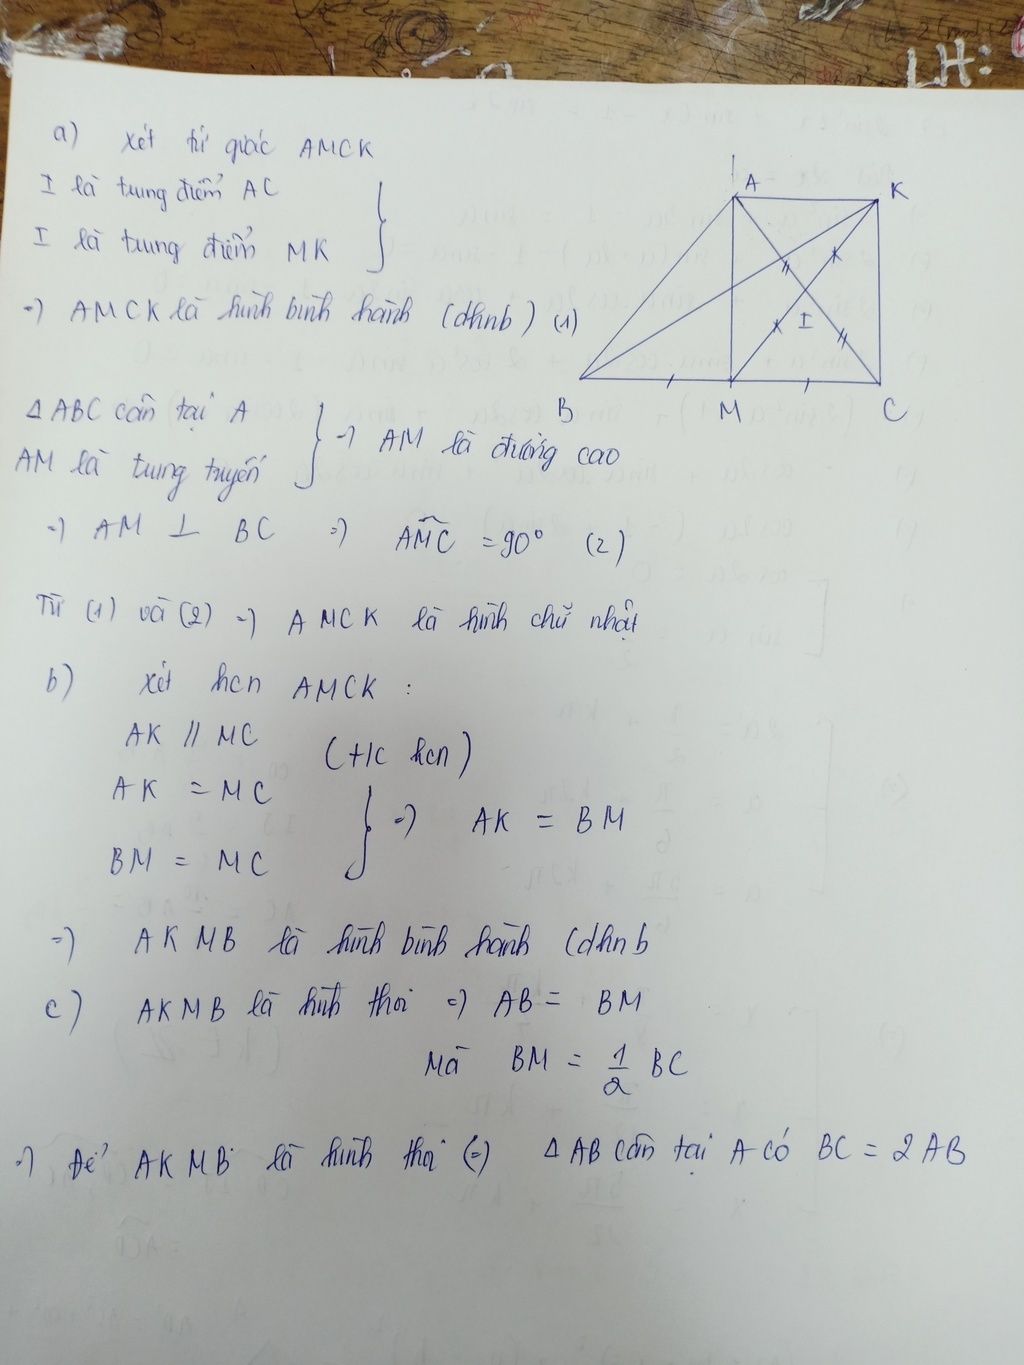 LH:
a) xét tứ giác AMCK
I là trung điểm AC
I là trung điểm MK
=> AMCK là hình bình hành (dhnb) (1)
A K
I
B M C
Δ ABC cân tại A
AM là trung tuyến
=> AM là đường cao
=> AM ⊥ BC => AMC = 90° (2)
Từ (1) và (2) => AMCK là hình chữ nhật
b) xét hcn AMCK :
AK // MC
(t/c hcn)
AK = MC
BM = MC
=> AK = BM
=> AKMB là hình bình hành (dhnb
c) AKMB là hình thoi => AB = BM
Mà BM = 1/2 BC
=> Để AKMB là hình thoi (=) Δ AB cân tại A có BC = 2AB